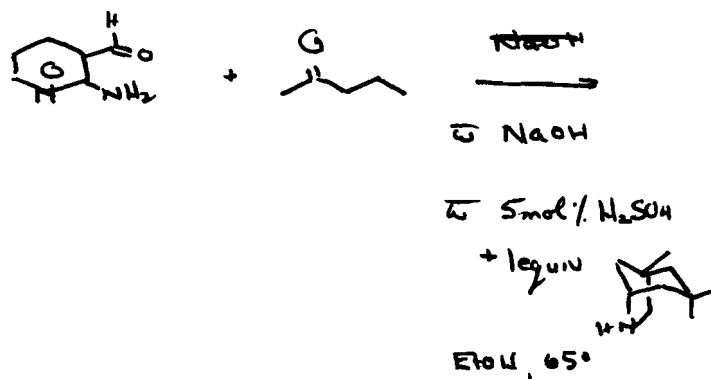 H
O
O
N
NH₂
+
O
NaOH
w̄ NaOH
w̄ 5 mol % H₂SO4
+ 1 equiv
HN
EtOH, 65°